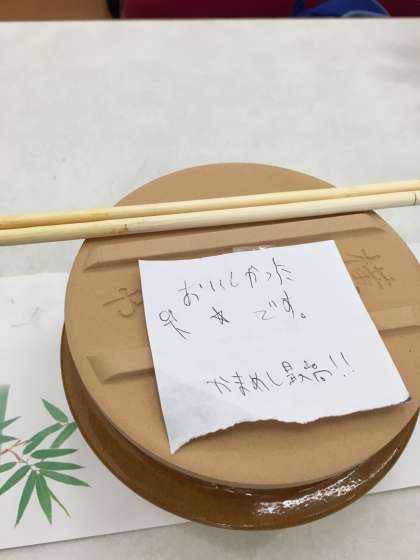 おいしかった
です。
かまめし最高!!